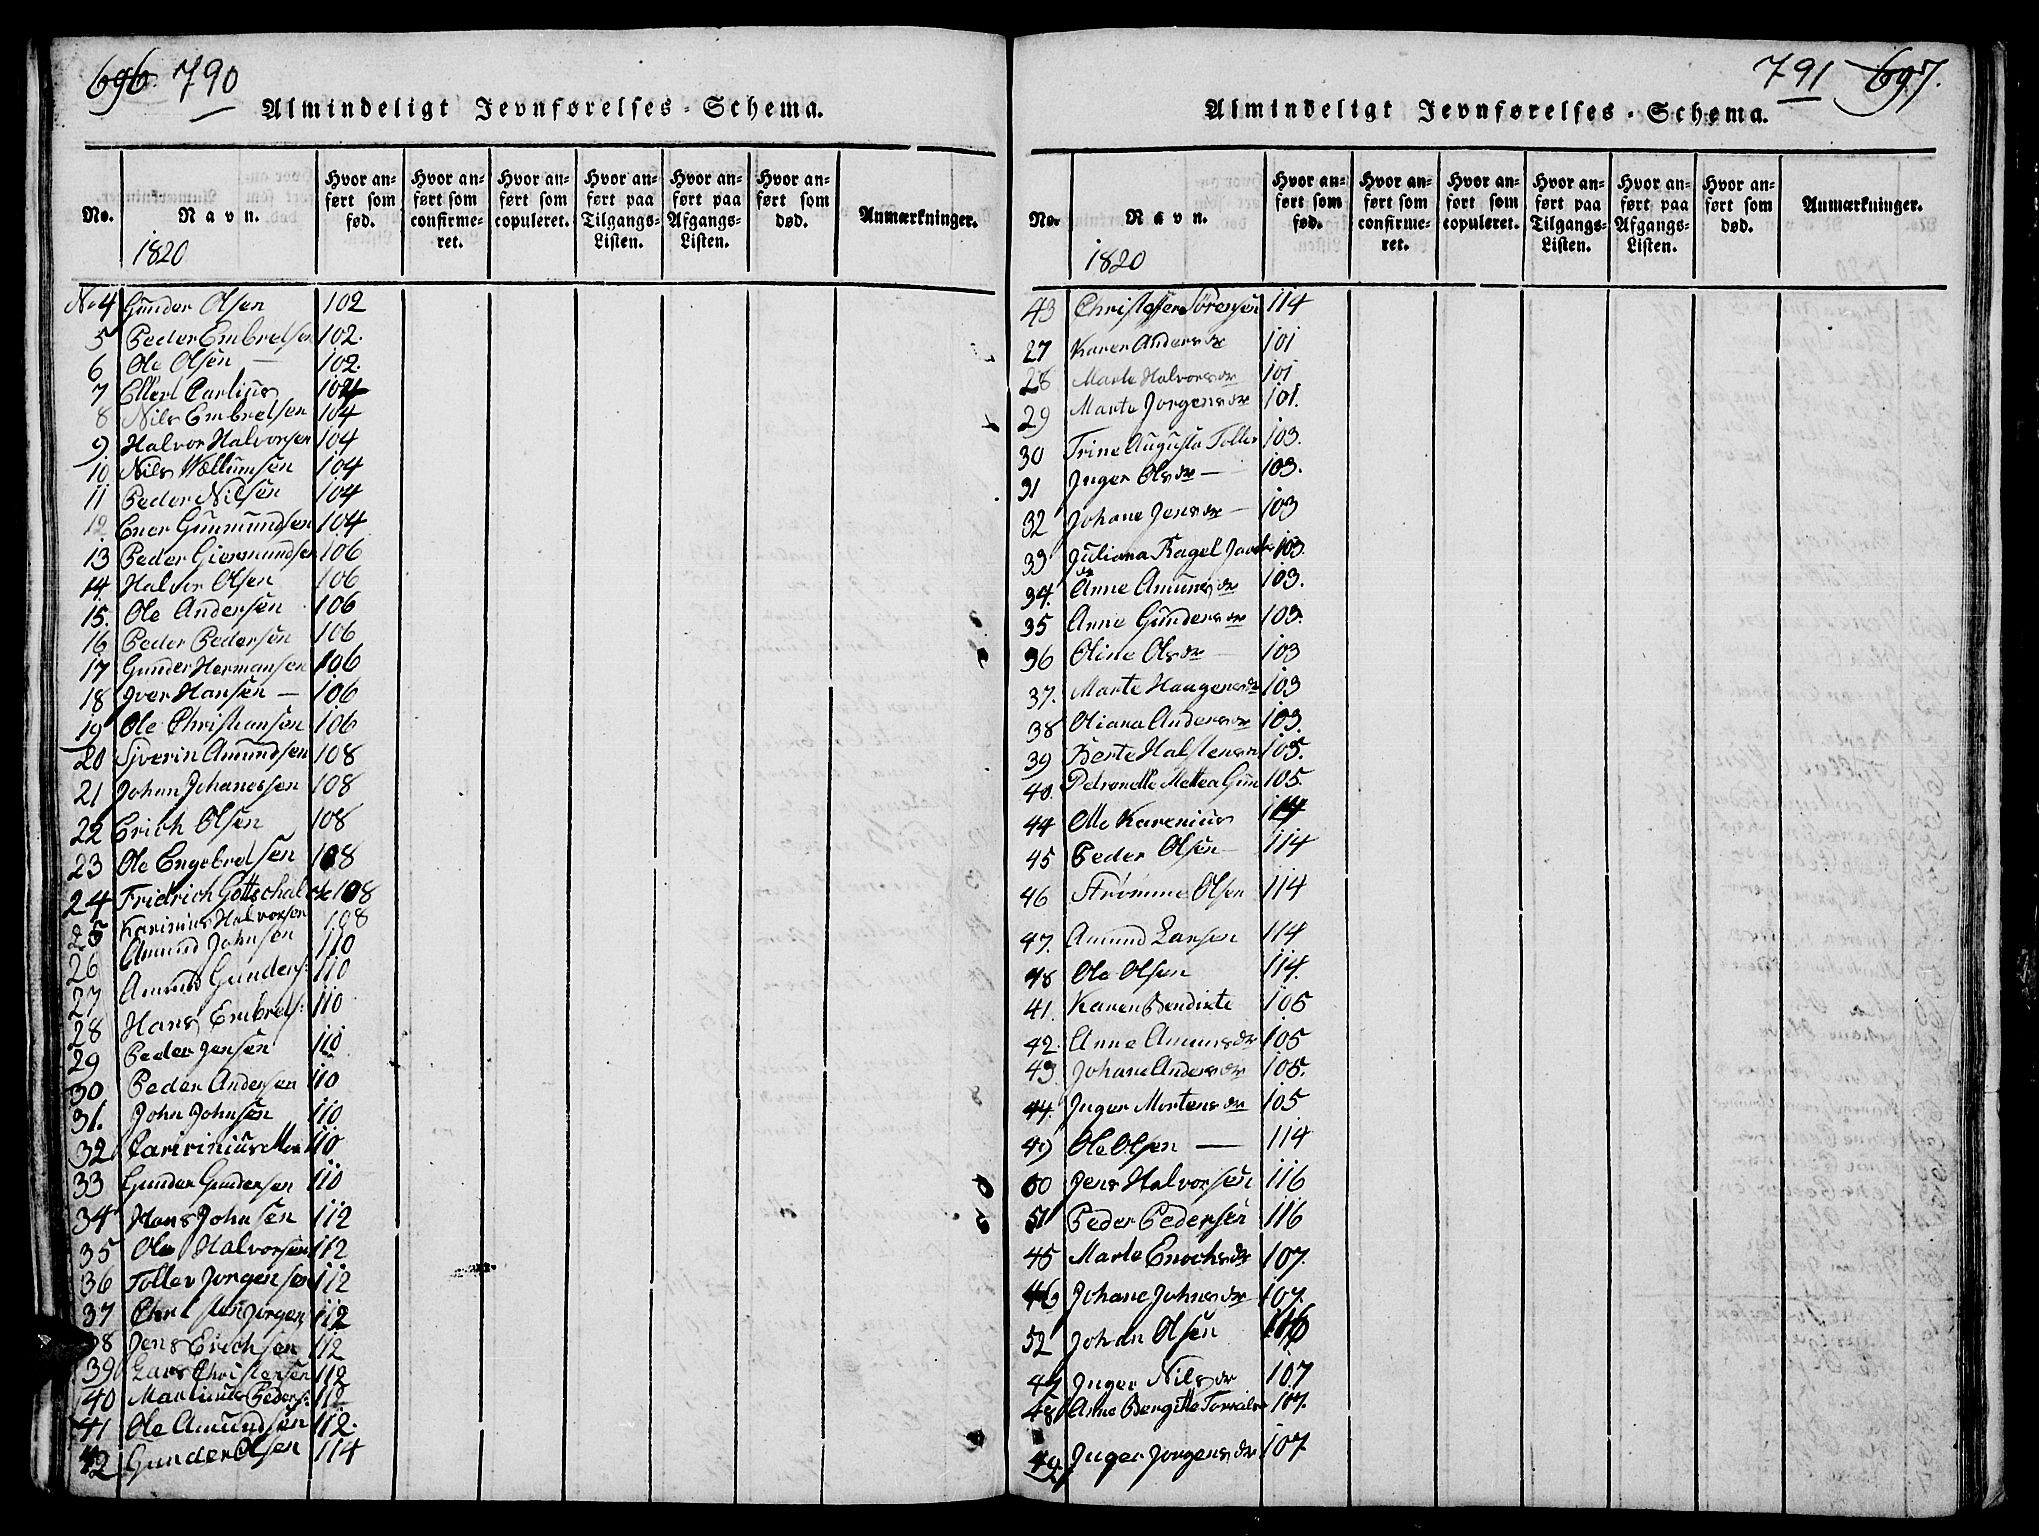 696. 790
Almindeligt Jevnførelses-Schema.
No.
Navn.
Hvor anført som fød.
Hvor anført som confirmeret.
Hvor anført som copuleret.
Hvor anført paa Tilgangs-Listen.
Hvor anført paa Afgangs-Listen.
Hvor anført som død.
Anmærkninger.
1820
No 4 Gunder Olsen 102
5 Peder Embretsen 102.
6 Ole Olsen — 102.
7 Ellert Carlius 104
8 Nils Embretsen 104
9 Halvor Halvorsen 104
10 Nils Wællumsen 104
11 Peder Nilsen 104
12. Ener Gunmundsen 104
13 Peder Giermundsen 106
14. Halvor Olsen 106
15. Ole Andersen 106
16 Peder Pedersen 106
17 Gunder Hermansen 106
18 Iver Hansen — 106
19 Ole Christiansen 106
20 Syverin Amundsen 108
21 Johan Johanessen 108
22 Erich Olsen 108
23 Ole Engebretsen 108
24 Fridrich Gottschalck 108
25 Karinius Halvorsen 108
26 Amund Johnsen 110
27 Amund Gunders: 110
28 Hans Embrets: 110
29 Peder Jensen 110
30 Peder Andersen 110
31. John Johnsen 110
32 110
33 Gunder Gundersen 110
34 Hans Johnsen 112
35 Ole Halvorsen 112
36 Toller Jorgensen 112
37 Christen Jorgen 112
38 Jens Erichsen 112
39 Lars Christensen 112
40 Martinus Peders: 112
41 Ole Amundsen 112.
42 Gunder Olsen 114
791 697.
Almindeligt Jevnførelses-Schema.
No.
Navn.
Hvor anført som fød.
Hvor anført som confirmeret.
Hvor anført som copuleret.
Hvor anført paa Tilgangs-Listen.
Hvor anført paa Afgangs-Listen.
Hvor anført som død.
Anmærkninger.
1820
43 Christoffer Sörensen 114
27 Karen Andersdr 101
28 Marte Halvorsdr 101
29 Marte Jorgensdr 101.
30 Trine Augusta Toller 103.
31 Inger Olsdr — 103.
32 Johane Jensdr — 103
33 Juliana Ragel 103.
34. Anne Amunsdr 103.
35 Anne Gundersdr 103.
36 Oline Olsdr — 103
37. Marte Haagensdr 103
38 Oliana Andersdr 103.
39 Berte Halstensn 105.
40. Petronelle Mettea Gun 105.
44 Olle Karenius 114
45 Peder Olsen — 114
46 Strømme Olsen 114
47. Amund Larsen 114
48 Ole Olsen 114.
41. Karen Bendixte 105
42. Anne Amunsdr 105
43 Johane Andersdr 105.
44. Inger Mortensdr 105
49 Ole Olsen — 114
50 Jens Halvorsen 116
51 Peder Pedersen 116
45 Marte Enochsdr 107.
46 Johane Johnsdr 107.
52 Johan Olsen 116
47 Inger Nilsdr 107
48 Anne Bergitte 107.
49 Inger Jorgensdr 107